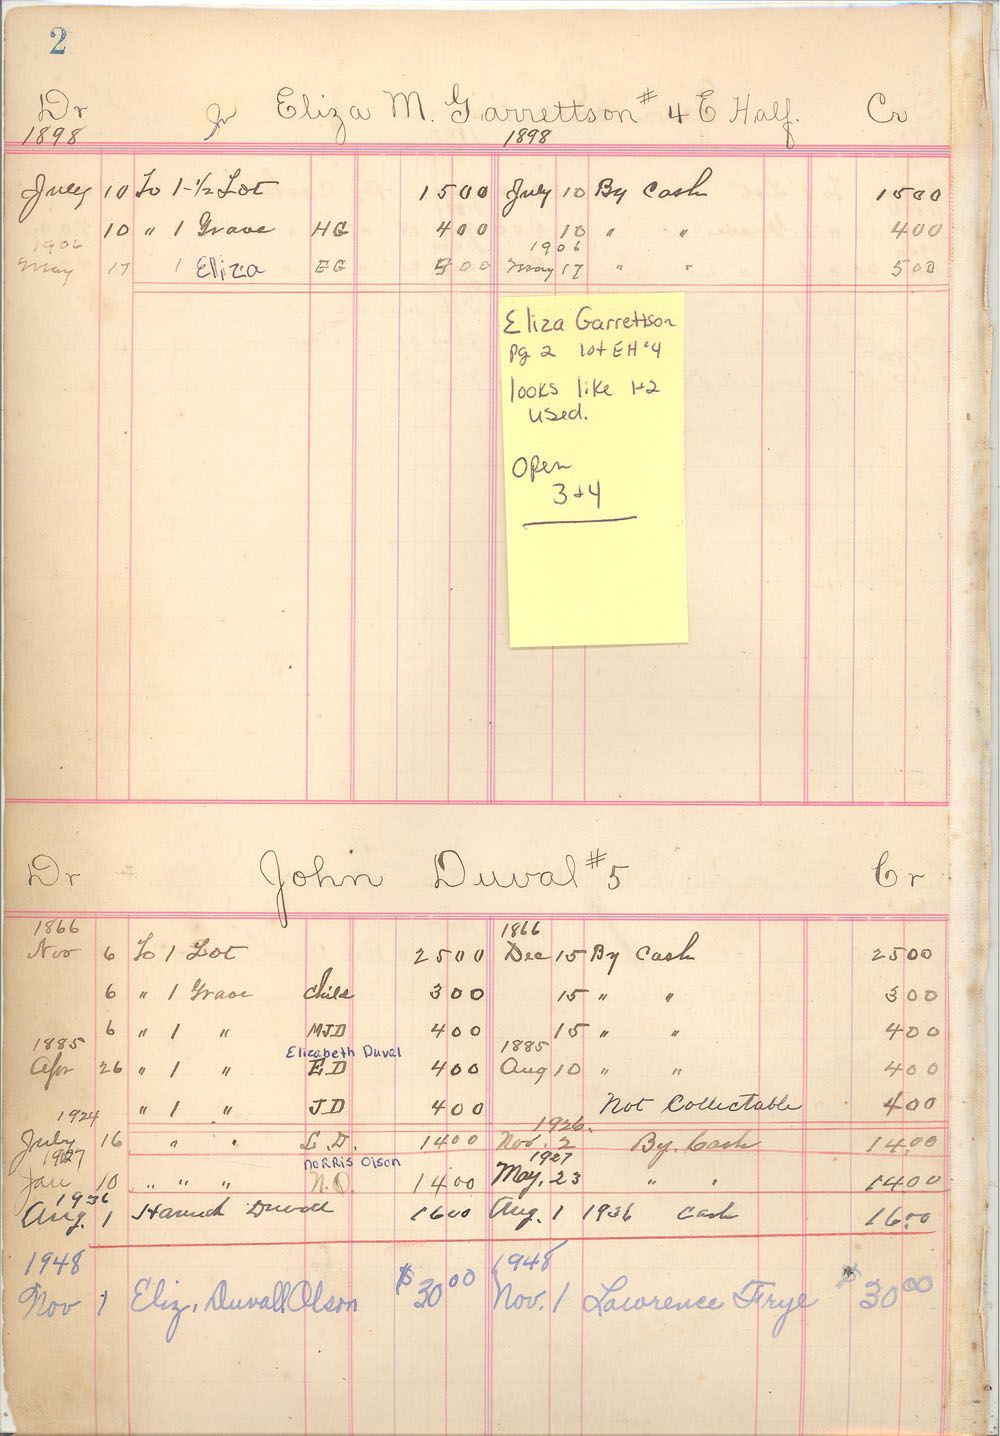 2
Dr Eliza M. Garrettson # 4 E Half. Cr
1898 1898
July 10 To 1-½ Lot 15 00 July 10 By Cash 15 00
10 " 1 Grave HG 4 00 10 " " 4 00
1906 1906
May 17 1 Eliza EG 5 00 May 17 " " 5 00
Eliza Garrettson
Pg 2 lot EH #4
looks like 1+2
used.
Open
3+4
Dr John Duval #5 Cr
1866 1866
Nov 6 To 1 Lot 25 00 Dec 15 By Cash 25 00
6 " 1 Grave Child 3 00 15 " " 3 00
6 " 1 " MJD 4 00 15 " " 4 00
1885 Elizabeth Duval 1885
Apr 26 " 1 " ED 4 00 Aug 10 " " 4 00
" 1 " JD 4 00 Not Collectable 4 00
1924 1926.
July 16 " " L.D. 14 00 Nov. 2 By Cash 14.00
1927 Norris Olson 1927
Jan 10 " " " N.O. 14 00 May. 23 " " 14 00
1936
Aug. 1 Duvall 16 00 Aug. 1 1936 Cash 16.00
1948 1948
Nov 1 Eliz. Duvall Olson $30 00 Nov. 1 Lawrence Frye $30 00